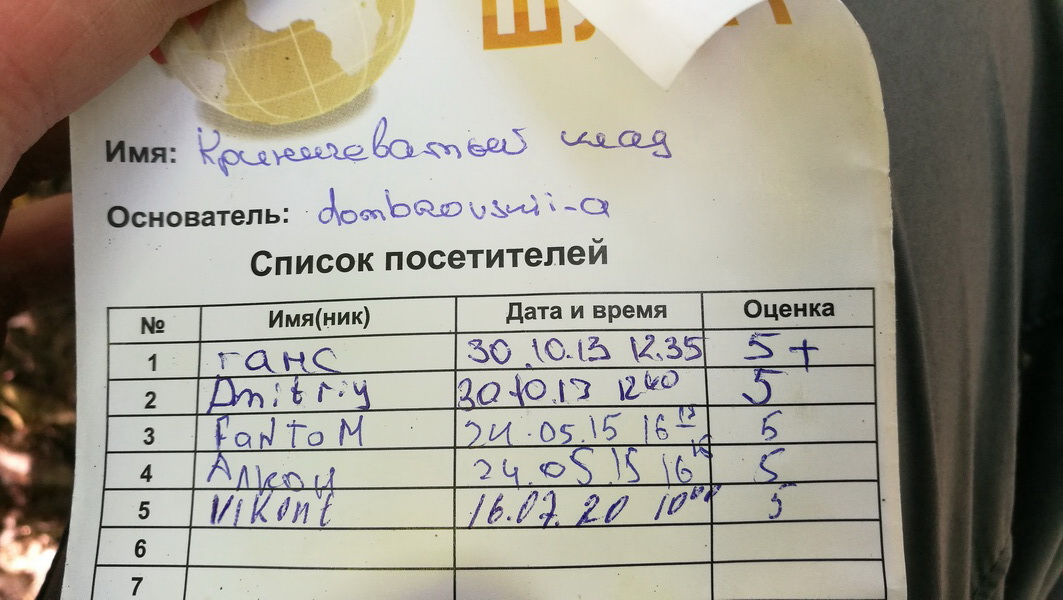 Имя: Криничеватый клад
Основатель: dombrovskii-a
Список посетителей
№ Имя(ник) Дата и время Оценка
1 ганс 30.10.13 12.35 5+
2 Dmitriy 30.10.13 12 40 5
3 FanToM 24.05.15 16 15 5
4 24.05.15 16 15 5
5 VIKont 16.07.20 10 00 5
6
7